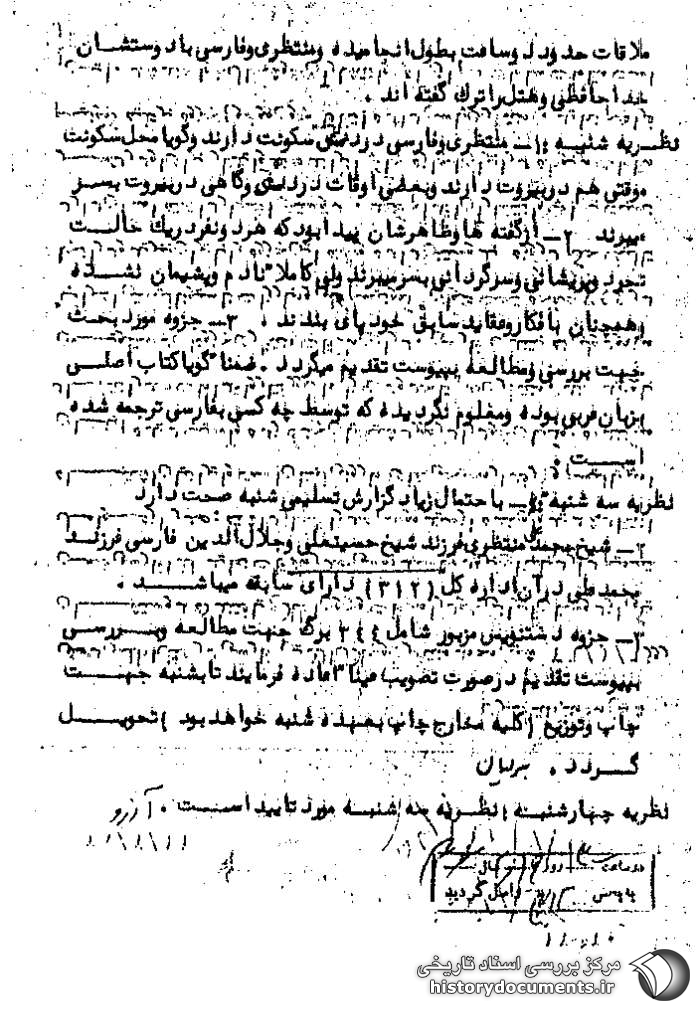 ملاقات حدود دو ساعت بطول انجامیده و منتظری و فارسی با دوستشان
خداحافظی و هتل را ترک گفته اند .
نظریه شنبه : ۱ـ منتظری و فارسی در دمشق سکونت دارند و گویا محل سکونت
موقتی هم در بیروت دارند و بعضی اوقات در دمشق و گاهی در بیروت بسر
میبرند ۲ـ از گفته ها و ظاهرشان پیدا بود که هر دو نفر در یک حالت
تجرد و پریشانی و سرگردانی بسر میبرند ولی کاملا" نادم و پشیمان نشده
و همچنان با فکار و عقاید سابق خود پای بندند . ۳ـ جزوه مورد بحث
جهت بررسی و مطالعه بپیوست تقدیم میگردد . ضمنا" گویا کتاب اصلی
بزبان عربی بوده و معلوم نگردیده که توسط چه کسی بفارسی ترجمه شده
است .
نظریه سه شنبه : ۱ـ با احتمال زیاد گزارش تسلیمی شنبه صحت دارد
۲ـ شیخ محمد علی منتظری فرزند شیخ حسینعلی و جلال الدین فارسی فرزند
محمد علی در آن اداره کل (۳۱۲) دارای سابقه میباشند .
۳ـ جزوه دستنویس مزبور شامل ۲۴۴ برگ جهت مطالعه و بررسی
بپیوست تقدیم در صورت تصویب عینا" اعاده فرمایند تا بشنبه جهت
چاپ و توزیع (کلیه مخارج چاپ بعهده شنبه خواهد بود) تحویل
گردد .
نظریه چهارشنبه : نظریه سه شنبه مورد تایید است . آرزو
در ساعت روز
به بخش واصل گردید
مرکز بررسی اسناد تاریخی
historydocuments.ir